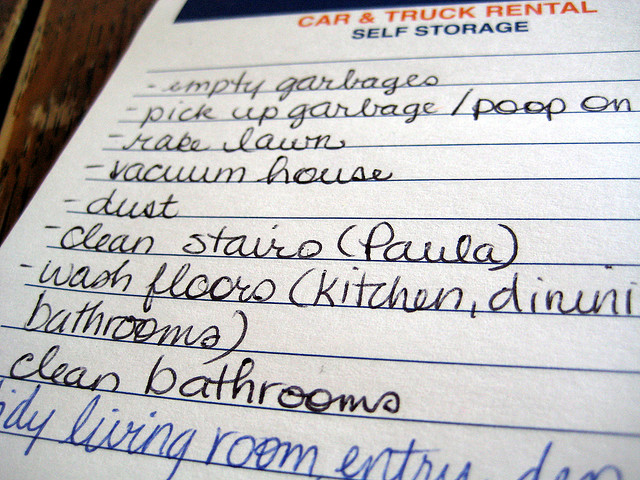 CAR & TRUCK RENTAL
SELF STORAGE
- empty garbages
- pick up garbage / poop on
- rake lawn
- vacuum house
- dust
- clean stairs (Paula)
- wash floors (kitchen, dinini
bathrooms)
clean bathrooms
idy living room, entry, den